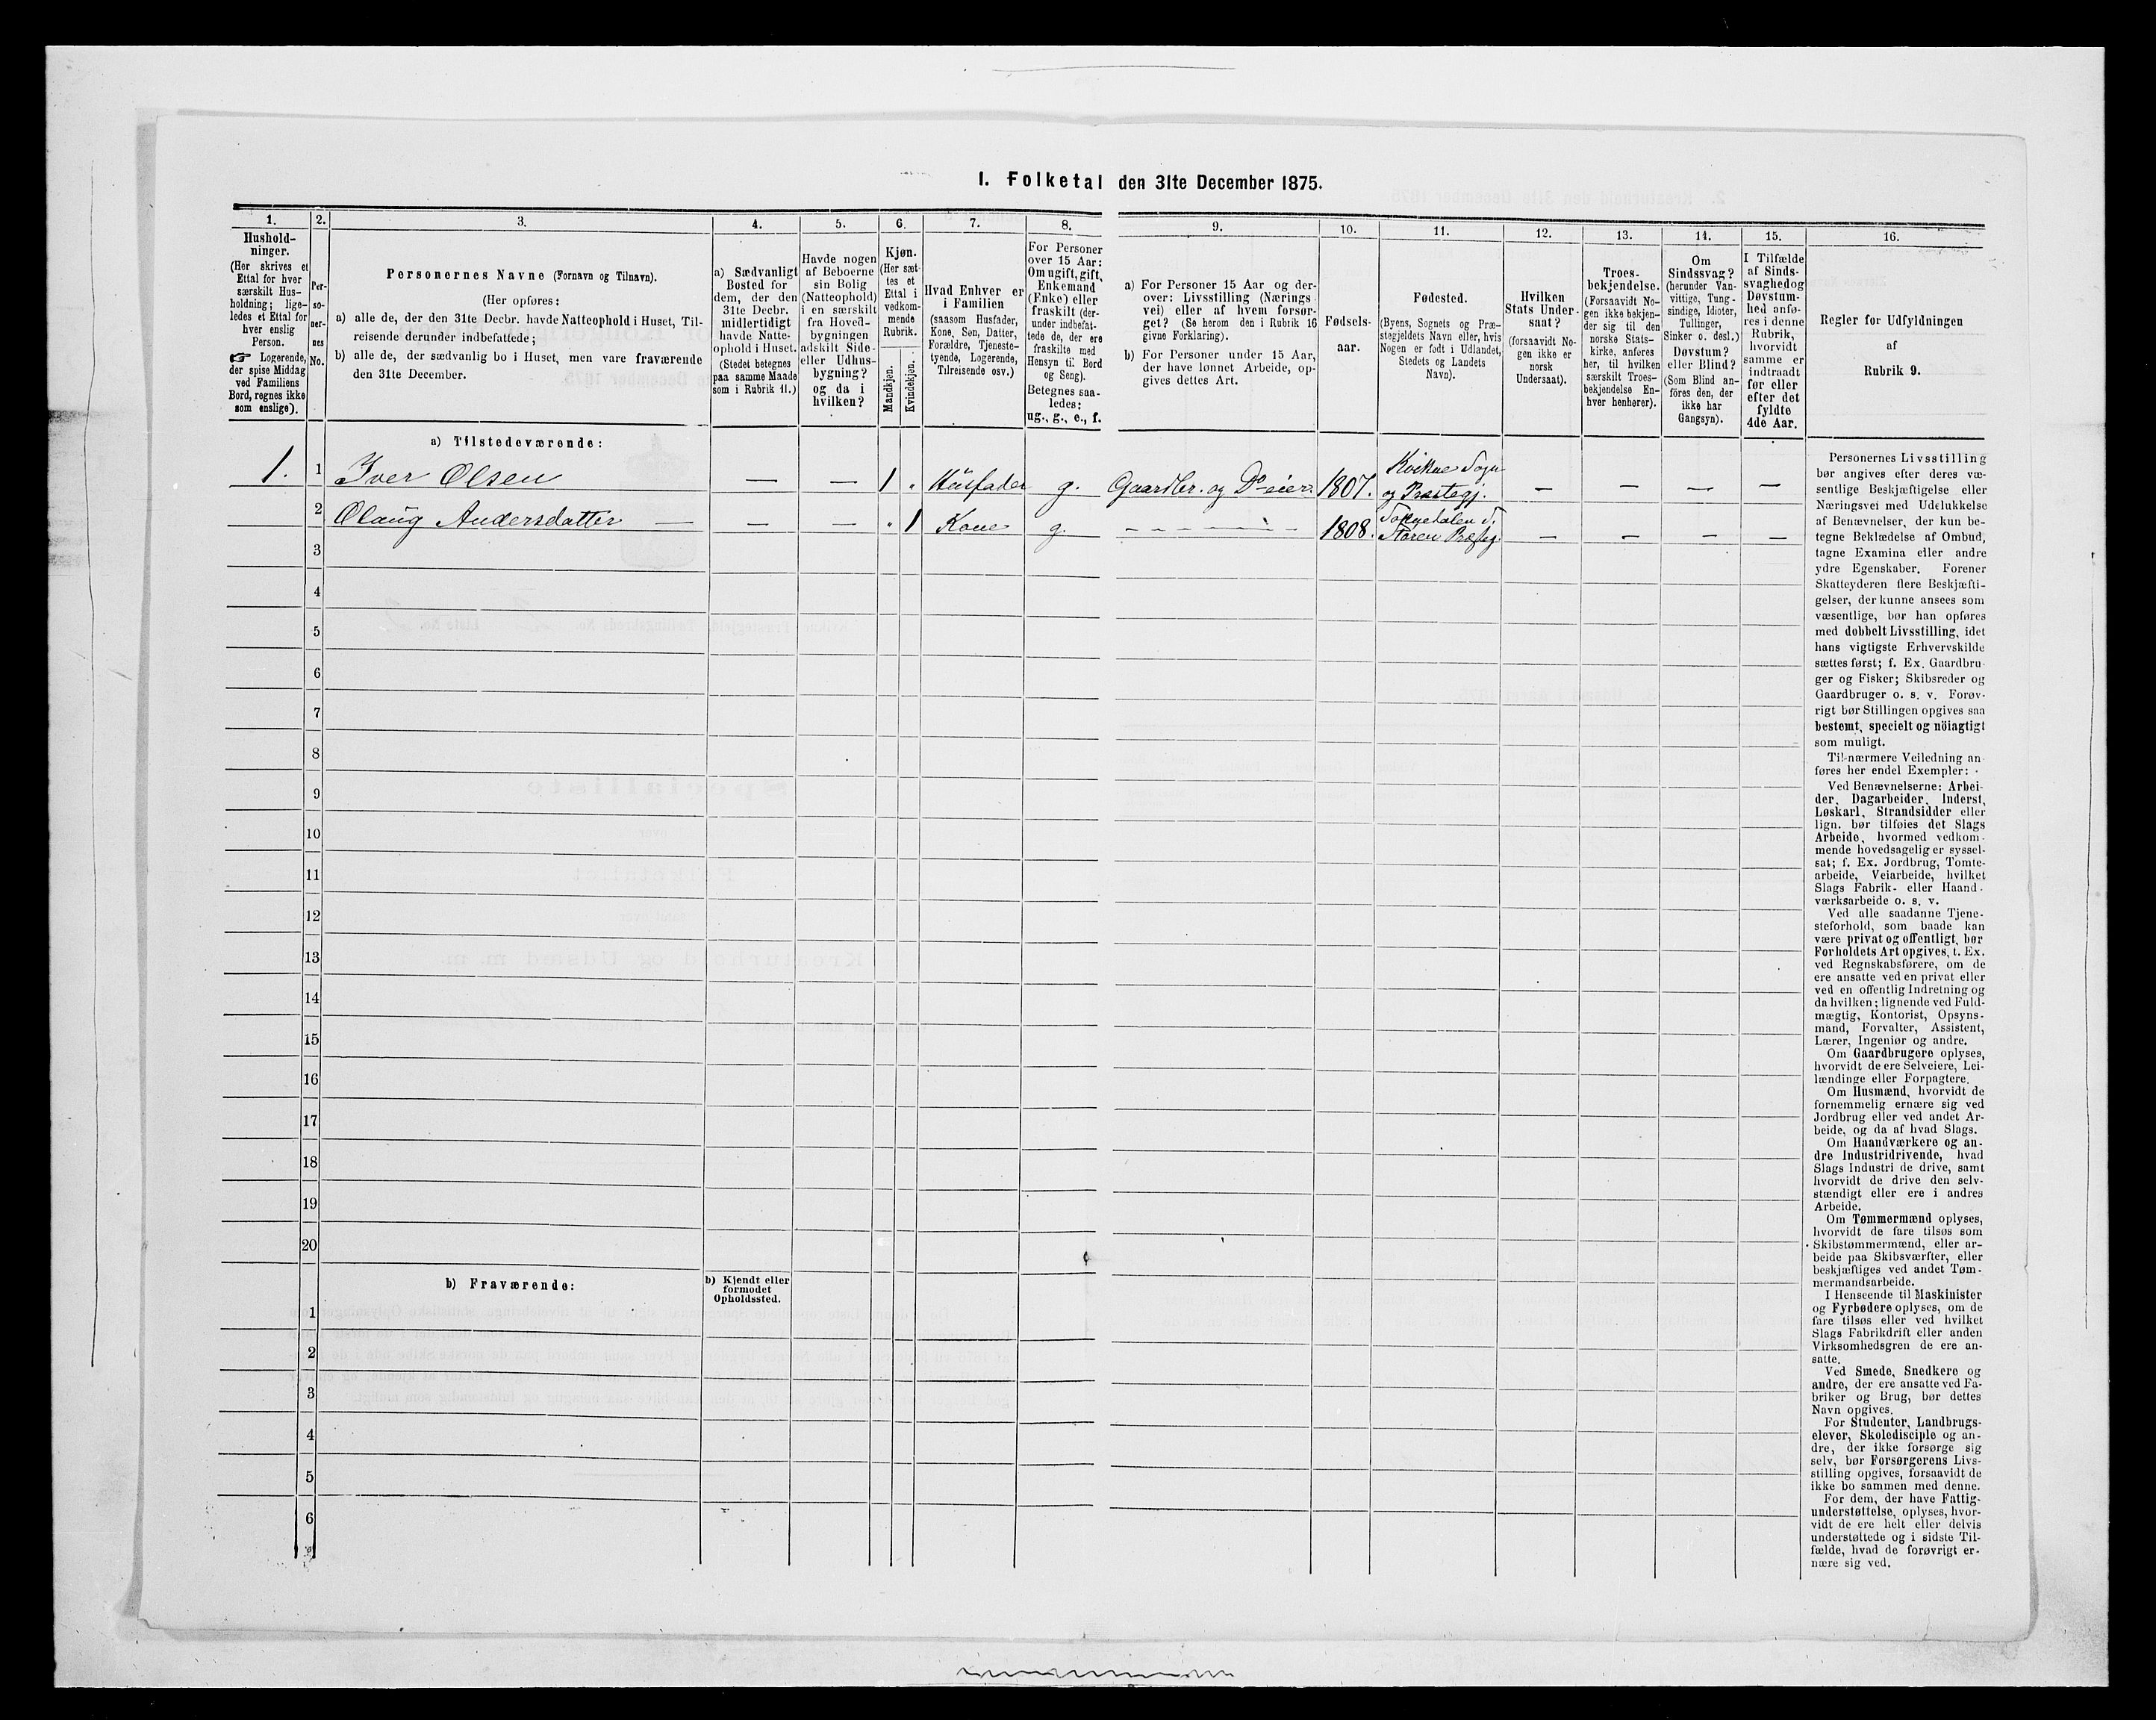 I. Folketal den 31te December 1875.
1. 2. 3. 4. 5. 6. 7. 8. 9. 10. 11. 12. 13. 14. 15. 16.
Hushold-
ninger.
(Her skrives et
Ettal for hver
særskilt Hus-
holdning; lige-
ledes et Ettal for
hver enslig
Person.
☞ Logerende,
der spise Middag
ved Familiens
Bord, regnes ikke
som enslige).
Per-
so-
ner-
nes
No.
Personernes Navne (Fornavn og Tilnavn).
(Her opføres:
a) alle de, der den 31te Decbr. havde Natteophold i Huset, Til-
reisende derunder indbefattede;
b) alle de, der sædvanlig bo i Huset, men vare fraværende
den 31te December.
a) Sædvanligt
Bosted for
dem, der den
31te Decbr.
midlertidigt
havde Natte-
ophold i Huset.
(Stedet betegnes
paa samme Maade
som i Rubrik 11.)
Havde nogen
af Beboerne
sin Bolig
(Natteophold)
i en særskilt
fra Hoved-
bygningen
adskilt Side-
eller Udhus-
bygning?
og da i
hvilken?
Kjøn.
(Her sæt-
tes et
Ettal i
vedkom-
mende
Rubrik.
Mandkjøn.
Kvindekjøn.
Hvad Enhver er
i Familien
(saasom Husfader,
Kone, Søn, Datter,
Forældre, Tjeneste-
tyende, Logerende,
Tilreisende osv.)
For Personer
over 15 Aar:
Om ugift, gift,
Enkemand
(Enke) eller
fraskilt (der-
under indbefat-
tede de, der ere
fraskilte med
Hensyn til Bord
og Seng).
Betegnes saa-
ledes:
ug., g., e., f.
a) For Personer 15 Aar og der-
over: Livsstilling (Nærings
vei) eller af hvem forsør-
get? (Se herom den i Rubrik 16
givne Forklaring).
b) For Personer under 15 Aar,
der have lønnet Arbeide, op-
gives dettes Art.
Fødsels-
aar.
Fødested.
(Byens, Sognets og Præ-
stegjeldets Navn eller, hvis
Nogen er født i Udlandet,
Stedets og Landets
Navn).
Hvilken
Stats Under-
saat?
(forsaavidt No-
gen ikke er
norsk
Undersaat).
Troes-
bekjendelse.
(Forsaavidt No-
gen ikke bekjen-
der sig til den
norske Stats-
kirke, anføres
her, til hvilken
særskilt Troes-
bekjendelse En-
hver henhører).
Om
Sindssvag?
(herunder Van-
vittige, Tung-
sindige, Idioter,
Tullinger,
Sinker o. desl.)
Døvstum?
eller Blind?
(Som Blind an-
föres den, der
ikke har
Gangsyn).
I Tilfælde
af Sinds-
svaghed og
Døvstum-
hed anfø-
res i denne
Rubrik,
hvorvidt
samme er
indtraadt
før eller
efter det
fyldte
4de Aar.
Regler for Udfyldningen
af
Rubrik 9.
a) Tilstedeværende:
1. 1 Iver Olsen — — 1 „ Husfader g. Gaardbr. og Do eier. 1807. Kvikne Sogn
og Præstegj. — — — —
2 Olaug Andersdatter — — — „ 1 Kone g. — — — — — 1808. Soknedalen S.
Støren Præsteg. — — — —
3
4
5
6
7
8
9
10
11
12
13
14
15
16
17
18
19
20
b) Fraværende:
b) Kjendt eller
formodet
Opholdssted.
1
2
3
4
5
6
Personernes Livsstilling
bør angives efter deres væ-
sentlige Beskjæftigelse eller
Næringsvei med Udelukkelse
af Benævnelser, der kun be-
tegne Beklædelse af Ombud,
tagne Examina eller andre
ydre Egenskaber. Forener
Skatteyderen flere Beskjæfti-
gelser, der kunne ansees som
væsentlige, bør han opføres
med dobbelt Livsstilling, idet
hans vigtigste Erhvervskilde
sættes først; f. Ex. Gaardbru-
ger og Fisker; Skibsreder og
Gaardbruger o. s. v. Forøv-
rigt bør Stillingen opgives saa
bestemt, specielt og nöiagtigt
som muligt.
Til nærmere Veiledning an-
føres her endel Exempler:
Ved Benævnelserne: Arbei-
der, Dagarbeider, Inderst,
Løskarl, Strandsidder eller
lign. bør tilføies det Slags
Arbeide, hvormed vedkom-
mende hovedsagelig er syssel-
sat; f. Ex. Jordbrug, Tomte-
arbeide, Veiarbeide, hvilket
Slags Fabrik- eller Haand-
værksarbeide o. s. v.
Ved alle saadanne Tjene-
steforhold, som baade kan
være privat og offentligt, bør
Forholdets Art opgives, t. Ex.
ved Regnskabsførere, om de
ere ansatte ved en privat eller
ved en offentlig Indretning og
da hvilken; lignende ved Fuld-
mægtig, Kontorist, Opsyns-
mand, Forvalter, Assistent,
Lærer, Ingeniør og andre.
Om Gaardbrugere oplyses,
hvorvidt de ere Selveiere, Lei-
lændinge eller Forpagtere.
Om Husmænd, hvorvidt de
fornemmelig ernære sig ved
Jordbrug eller ved andet Ar-
beide, og da af hvad Slags.
Om Haandværkere og an-
dre Industridrivende, hvad
Slags Industri de drive, samt
hvorvidt de drive den selv-
stændigt eller ere i andres
Arbeide.
Om Tømmermænd oplyses,
hvorvidt de fare tilsøs som
Skibstømmermænd, eller ar-
beide paa Skibsværfter, eller
beskjæftiges ved andet Tøm-
mermandsarbeide.
I Henseende til Maskinister
og Fyrbødere oplyses, om de
fare tilsøs eller ved hvilket
Slags Fabrikdrift eller anden
Virksomhedsgren de ere an-
satte.
Ved Smede, Snedkere og
andre, der ere ansatte ved Fa-
briker og Brug, bør dettes
Navn opgives.
For Studenter, Landbrugs-
elever, Skoledisciple og an-
dre, der ikke forsørge sig
selv, bør Forsørgerens Livs-
stilling opgives, forsaavidt de
ikke bo sammen med denne.
For dem, der have Fattig-
understøttelse, oplyses, hvor-
vidt de ere helt eller delvis
understøttede og i sidste Til-
fælde, hvad de forøvrigt er-
nære sig ved.